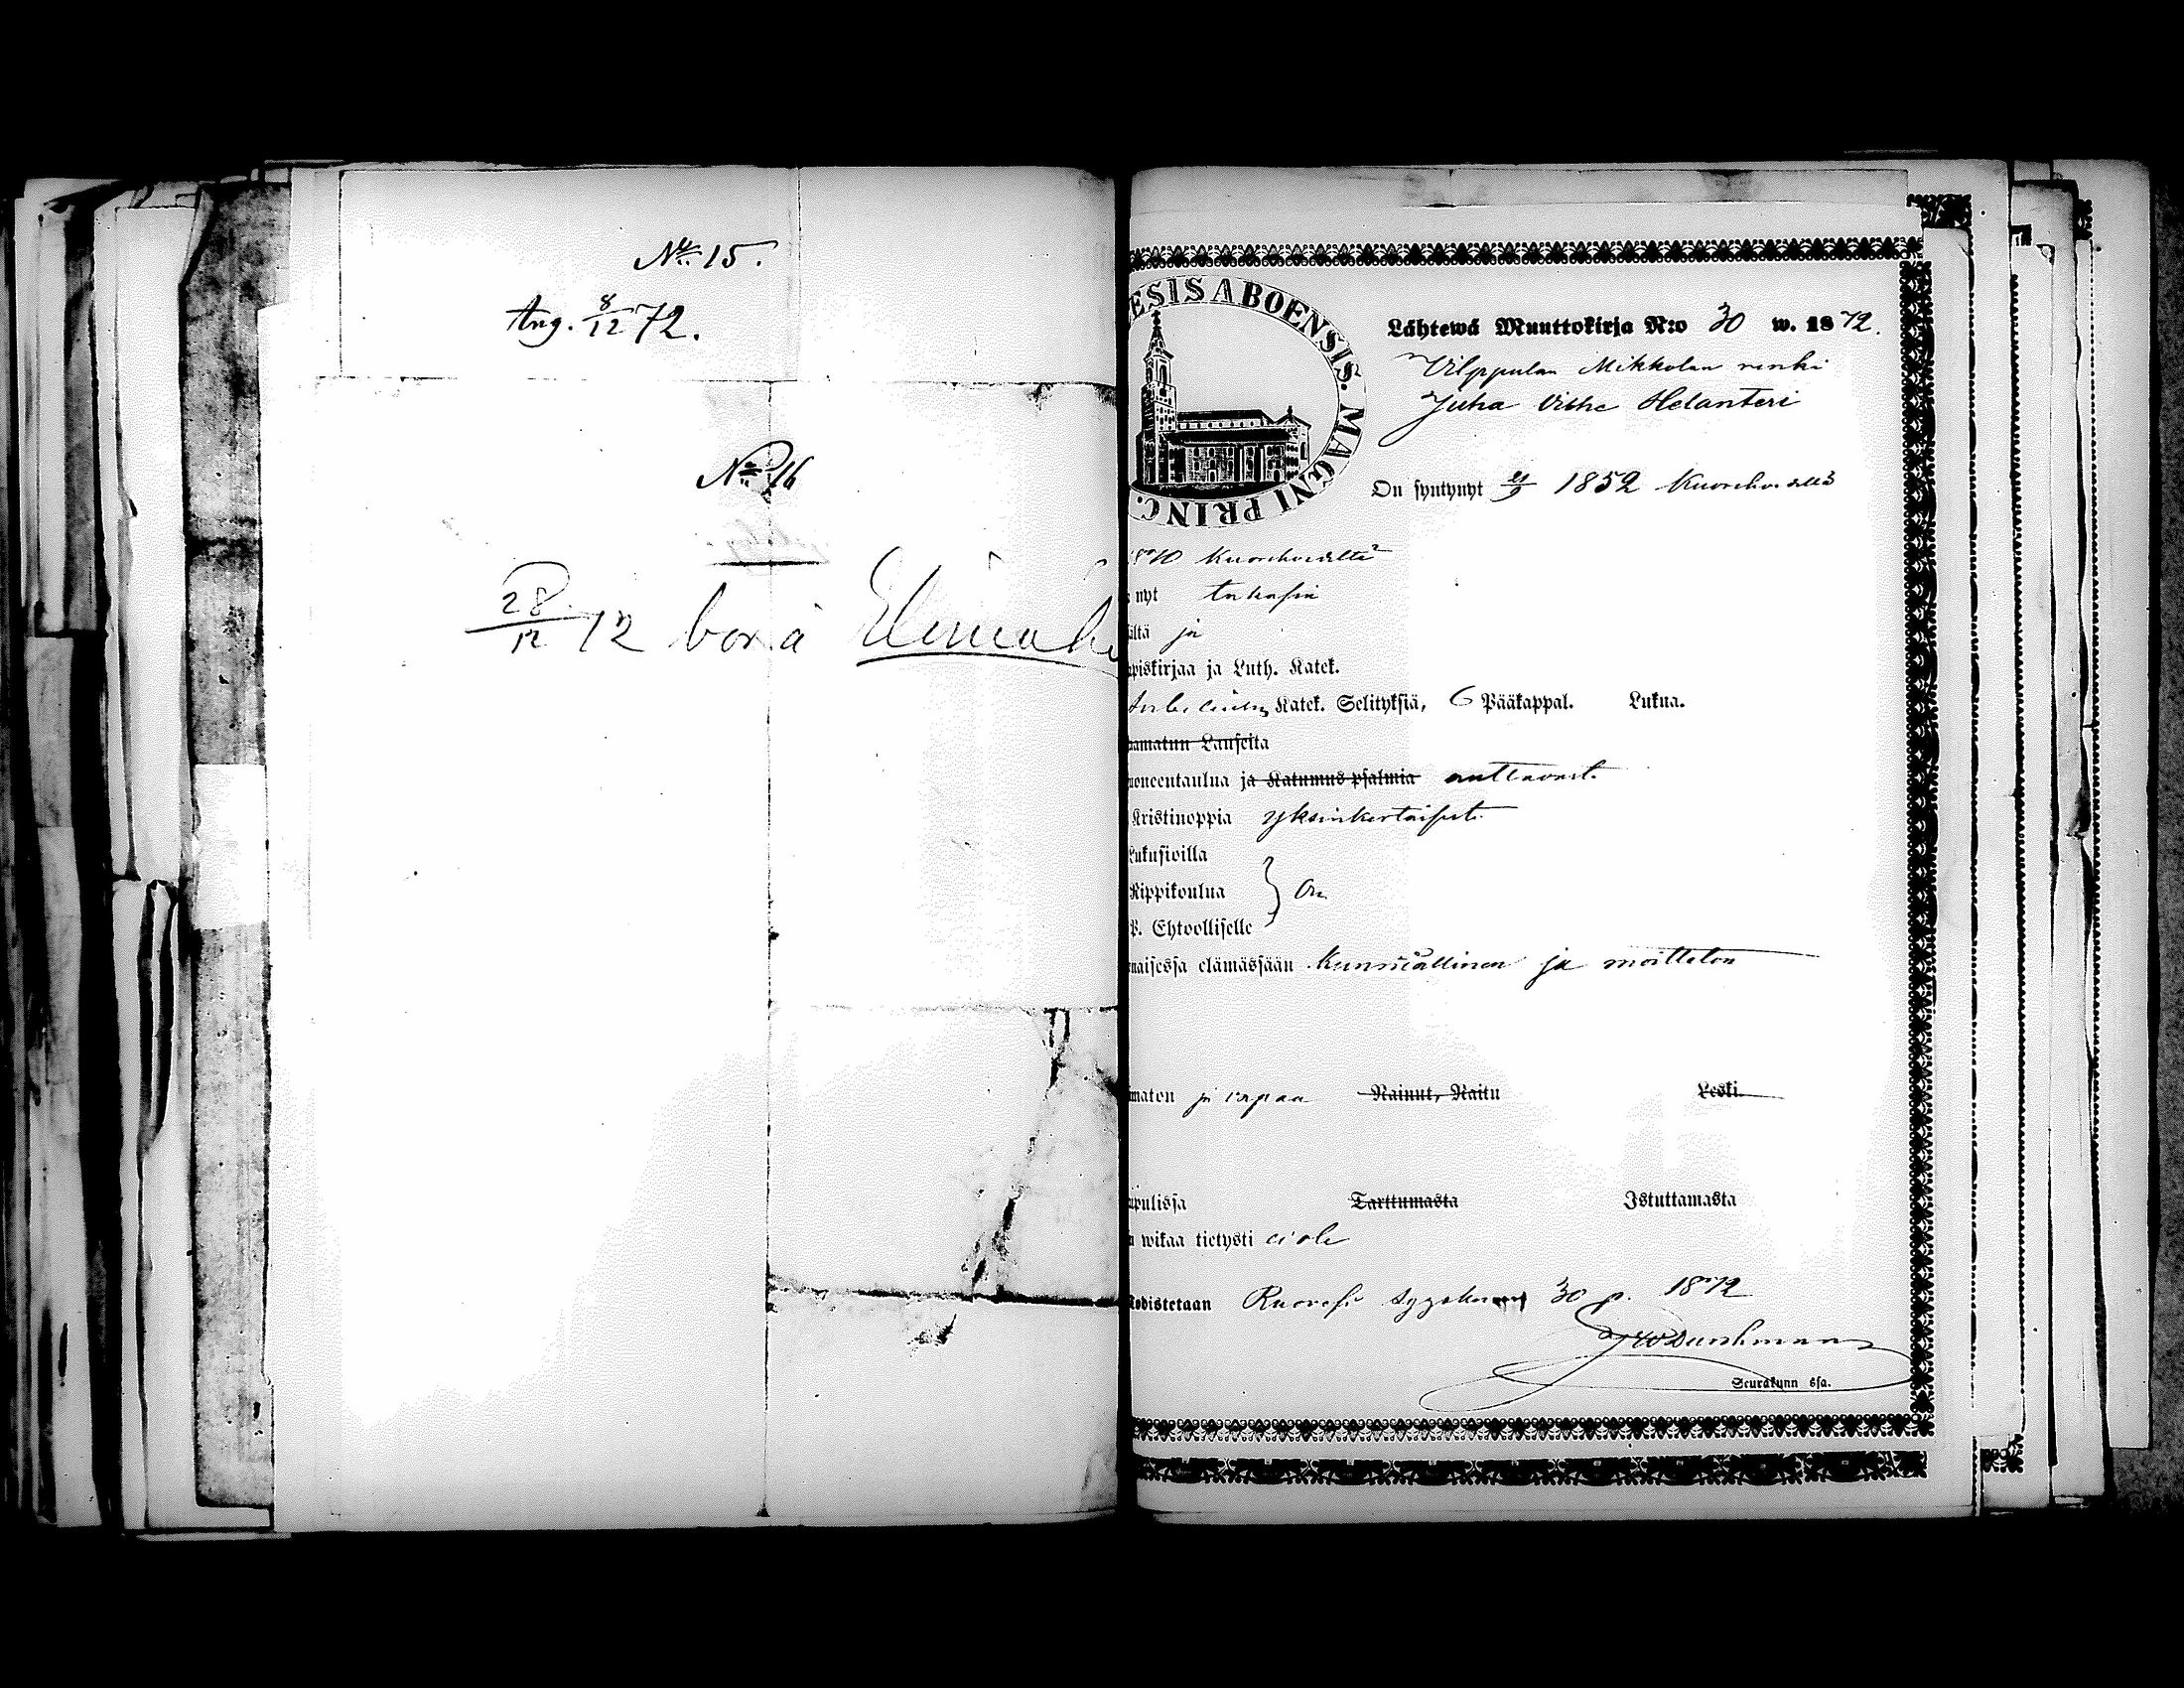 No 15.
Ang. 8/12 72.
No 16
28/12 72
ESIS ABOENSIS. MAGNI PRINC.
Lähtewä Muuttokirja N:o 30 w. 1872.
Vilppulan Mikkolan renki
Juha Vilhe Helanteri
On syntynyt 1852
1870
nyt takasin
ältä ja
piskirjaa ja Luth. Katek.
Katek. Selityksiä, 6 Pääkappal. Lukua.
amatun Lauseita
oneentaulua ja Katumus psalmia auttavast.
Kristinoppia yksinkertaisest.
Lukusioilla
Rippikoulua } On
P. Ehtoolliselle
maisessa elämässään kunniallinen ja moitteton
maton ja vapaa Nainut, Naitu Leski.
pulissa Tarttumasta Istuttamasta
wikaa tietysti ei ole
odistetaan Ruovesi 30 p. 1872
Seurakunn ssa.